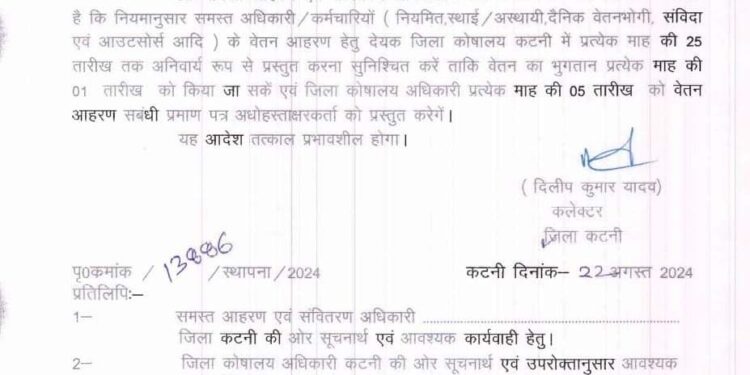 है कि नियमानुसार समस्त अधिकारी/कर्मचारियों ( नियमित,स्थाई/अस्थायी,दैनिक वेतनभोगी, संविदा
एवं आउटसोर्स आदि ) के वेतन आहरण हेतु देयक जिला कोषालय कटनी में प्रत्येक माह की 25
तारीख तक अनिवार्य रूप से प्रस्तुत करना सुनिश्चित करें ताकि वेतन का भुगतान प्रत्येक माह की
01 तारीख को किया जा सकें एवं जिला कोषालय अधिकारी प्रत्येक माह की 05 तारीख को वेतन
आहरण सबंधी प्रमाण पत्र अधोहस्ताक्षरकर्ता को प्रस्तुत करेगें।
यह आदेश तत्काल प्रभावशील होगा।
( दिलीप कुमार यादव)
कलेक्टर
जिला कटनी
पृ0कमांक / 13886 /स्थापना/2024 कटनी दिनांक– 22 अगस्त 2024
प्रतिलिपिः–
1– समस्त आहरण एवं संवितरण अधिकारी ................................................
जिला कटनी की ओर सूचनार्थ एवं आवश्यक कार्यवाही हेतु।
2– जिला कोषालय अधिकारी कटनी की ओर सूचनार्थ एवं उपरोक्तानुसार आवश्यक